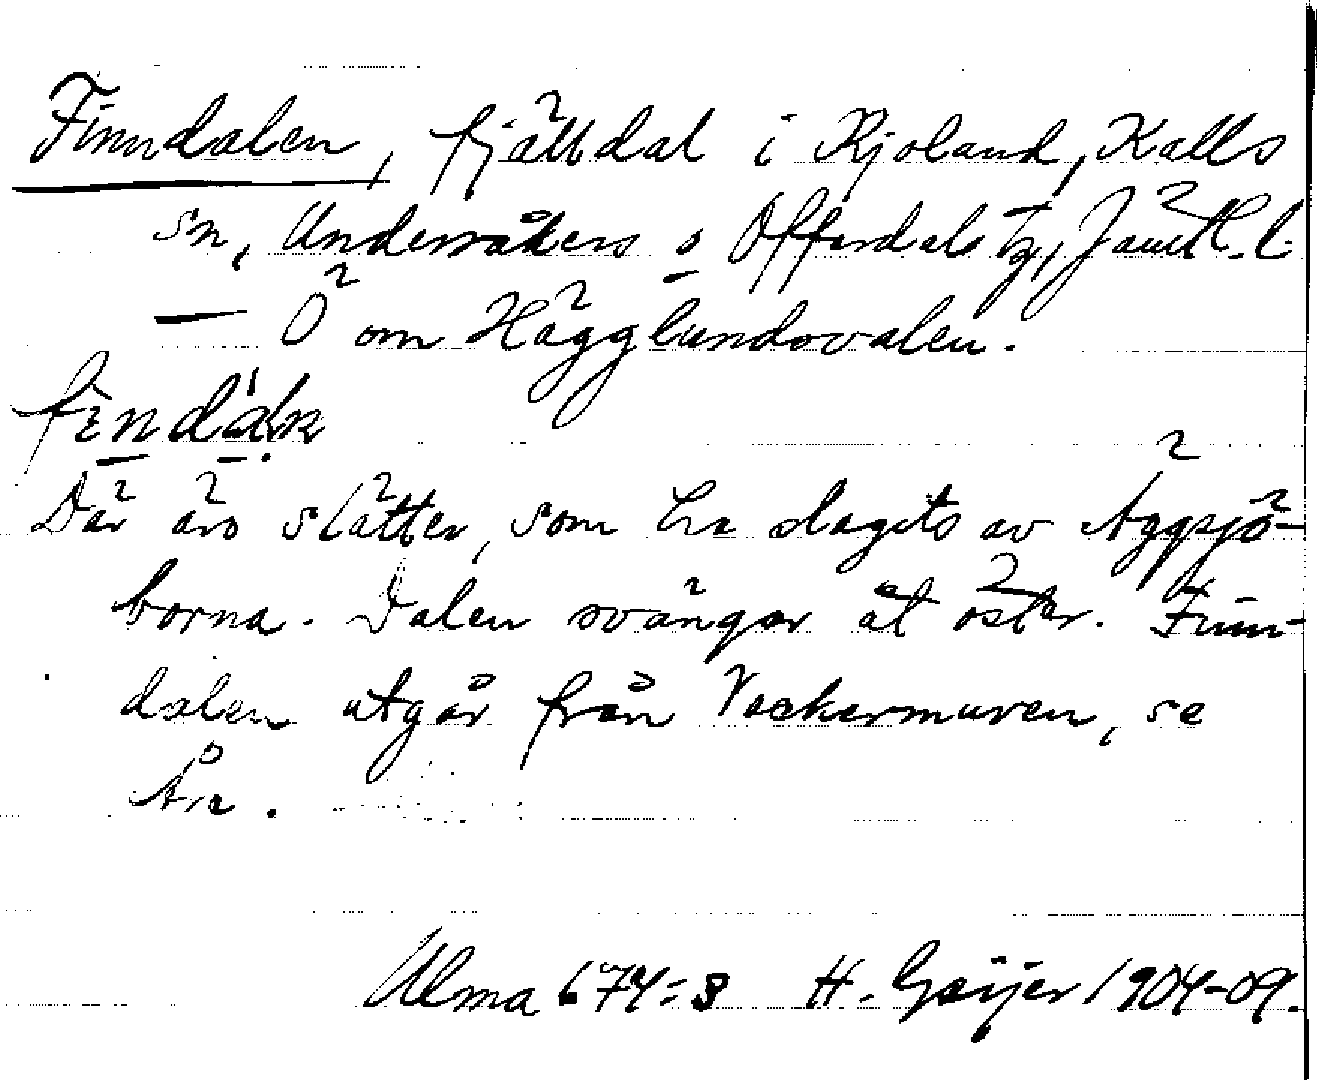 Finndalen, fjälldal i Kjoland, Kalls
sn, Undersåkers o Offerdals tg, Jämtl. l.
— Ö om Hägglundsvalen.
Där äro slåtter, som ha slagits av Äggsjö-
borna. Dalen svänger åt öster. Finn-
dalen utgår från Vackermuren, se
Åre.
Ulma 674:8 H. Geijer 1904-09.